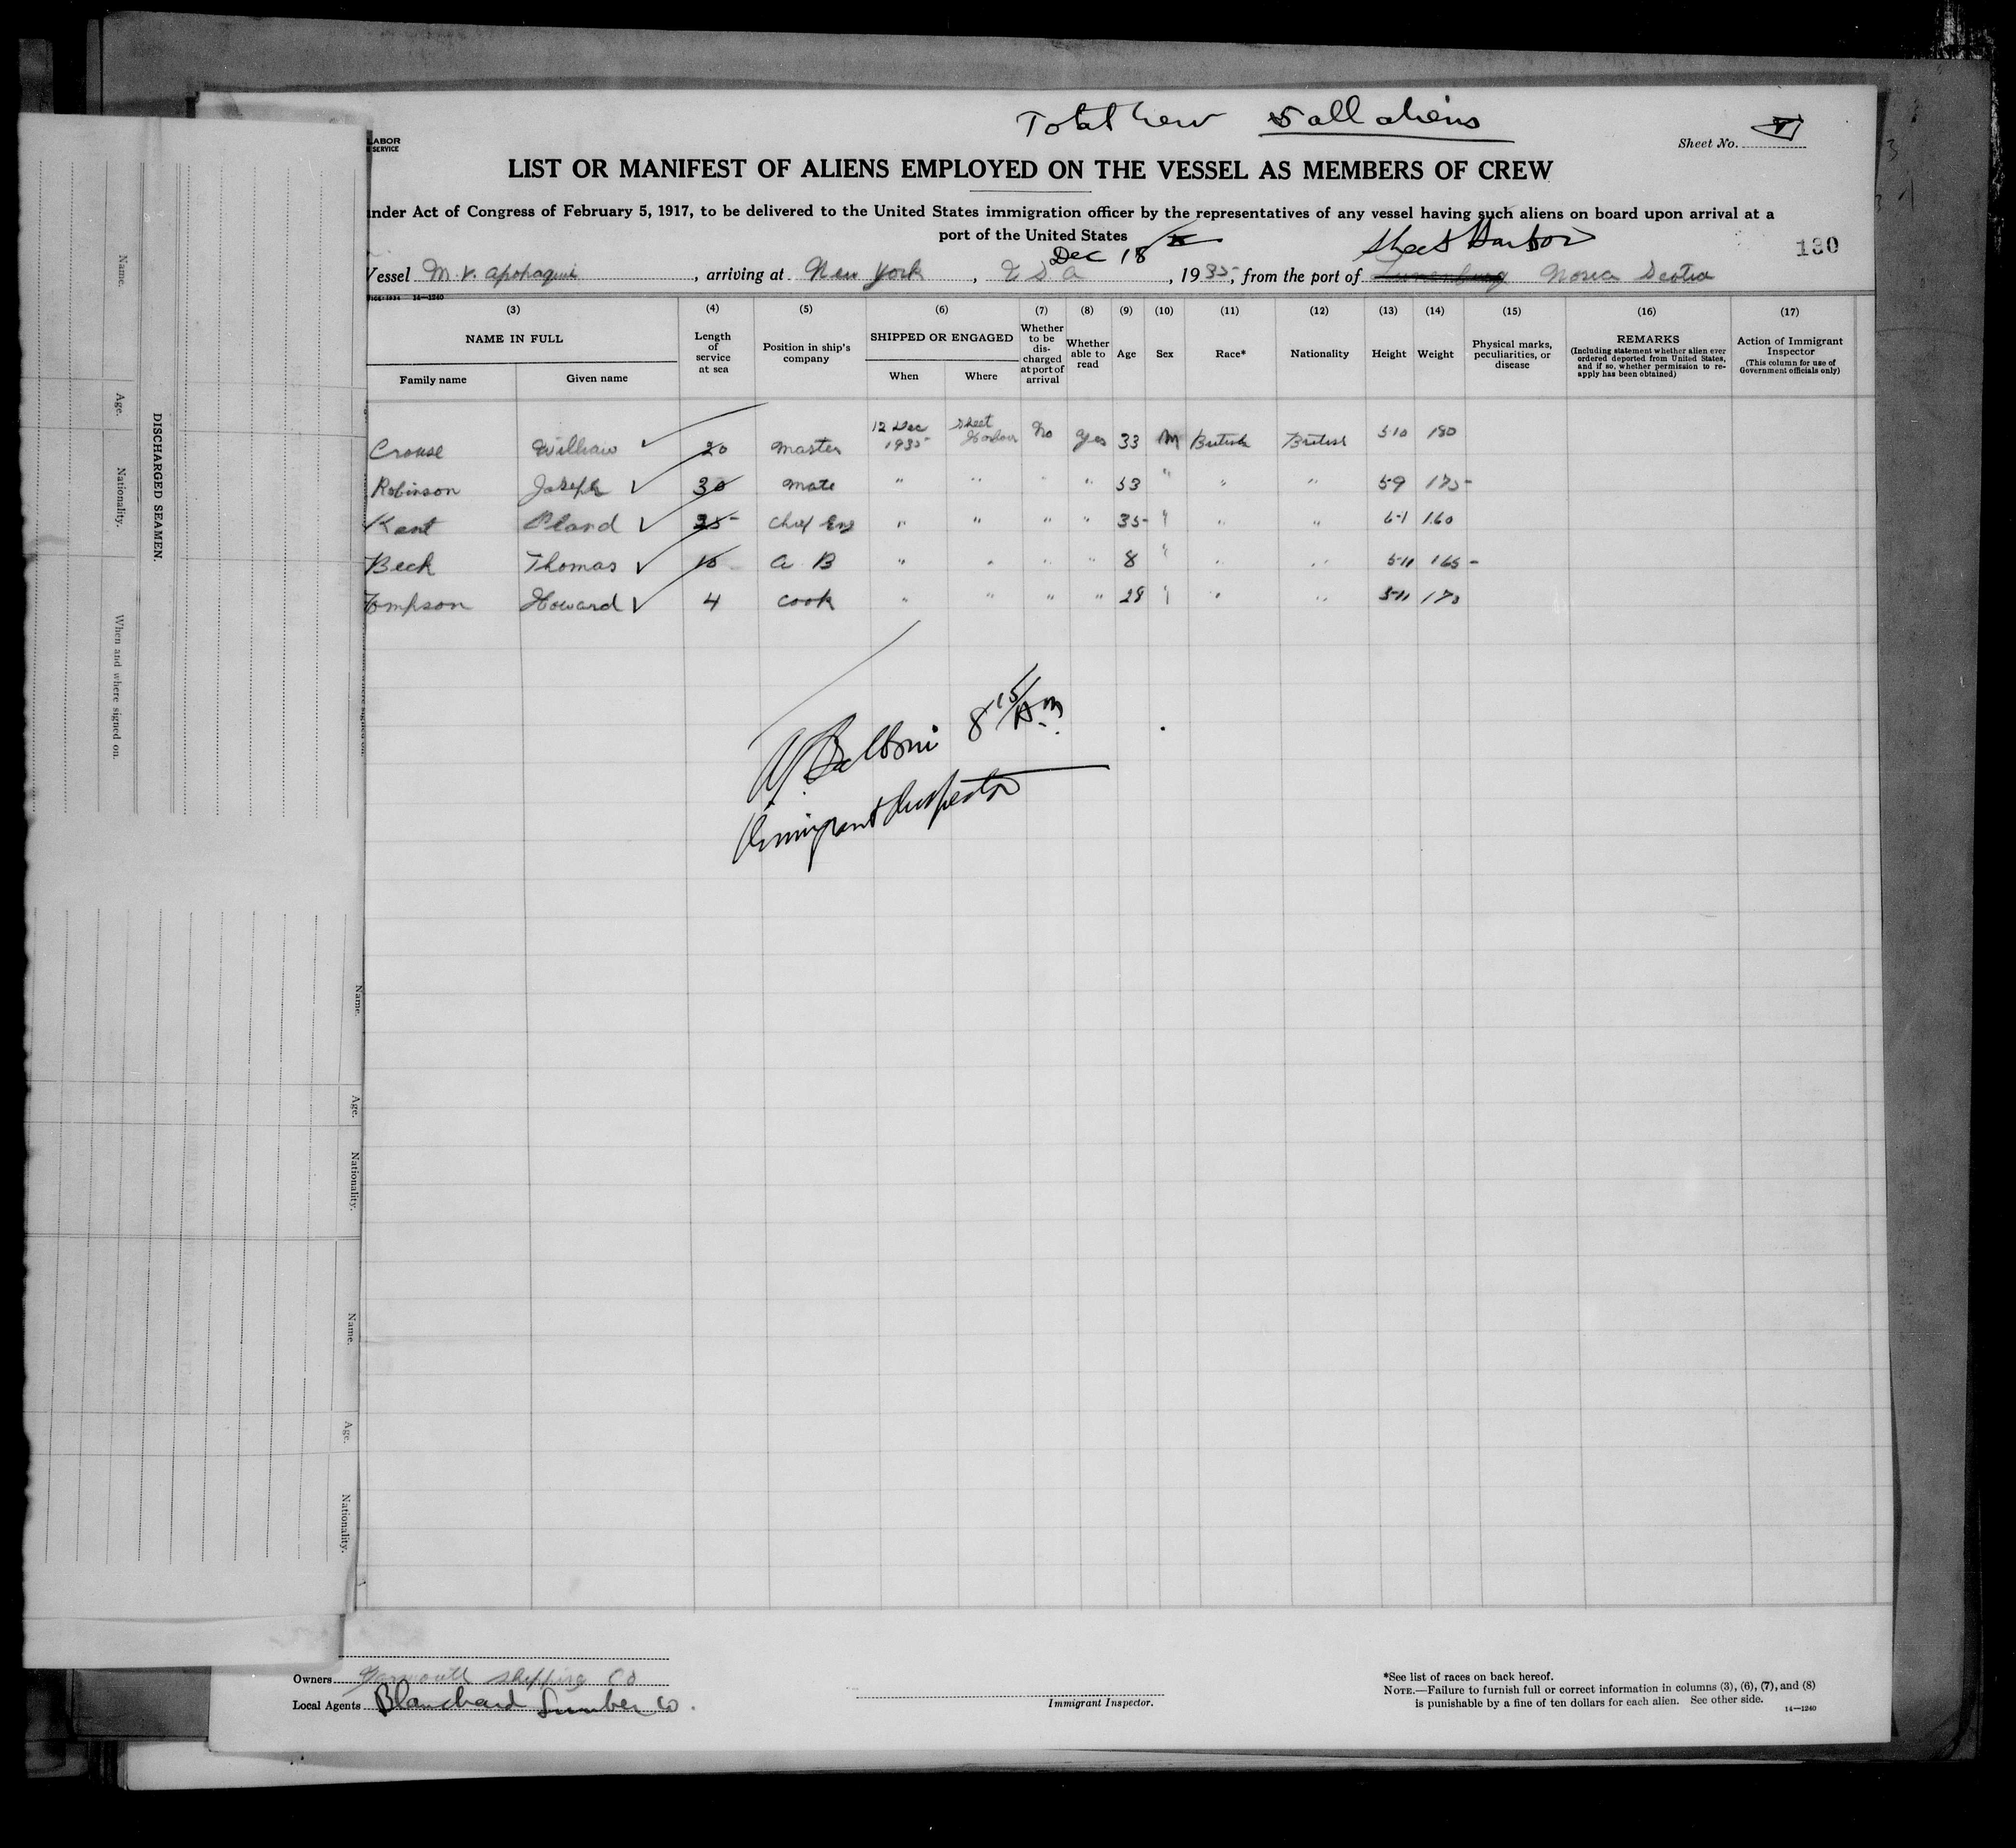 Total Crew 5 all aliens
LABOR
SERVICE
Sheet No.
LIST OR MANIFEST OF ALIENS EMPLOYED ON THE VESSEL AS MEMBERS OF CREW
under Act of Congress of February 5, 1917, to be delivered to the United States immigration officer by the representatives of any vessel having such aliens on board upon arrival at a
port of the United States
Dec 18
Sheet Harbor
130
Vessel M.V. Apohaqui, arriving at New York, U S A, 1935, from the port of Lunenburg Nova Scotia
14—1240
(3) (4) (5) (6) (7) (8) (9) (10) (11) (12) (13) (14) (15) (16) (17)
NAME IN FULL
Family name
Given name
Length of service at sea
Position in ship's company
SHIPPED OR ENGAGED
When
Where
Whether to be discharged at port of arrival
Whether able to read
Age
Sex
Race*
Nationality
Height
Weight
Physical marks, peculiarities, or disease
REMARKS
(Including statement whether alien ever ordered deported from United States, and if so, whether permission to re-apply has been obtained)
Action of Immigrant Inspector
(This column for use of Government officials only)
Crouse William ✓ 20 Master 12 Dec 1935 Sheet Harbour No Yes 33 M British British 5-10 180
Robinson Joseph ✓ 30 Mate " " " " 53 " " " 5-9 175
Kent ✓ 25 Chief Eng " " " " 35 " " " 6-1 160
Beck Thomas ✓ 10 A B " " " " 8 " " " 5-11 165
Tompson Howard ✓ 4 Cook " " " " 28 " " " 5-11 170
8 15/Am
Immigrant Inspector
DISCHARGED SEAMEN.
Name.
Age.
Nationality.
When and where signed on.
Name.
Age.
Nationality.
Name.
Age.
Nationality.
Owners Yarmouth Shipping Co
Local Agents Blanchard Lumber Co.
Immigrant Inspector.
*See list of races on back hereof.
NOTE.—Failure to furnish full or correct information in columns (3), (6), (7), and (8)
is punishable by a fine of ten dollars for each alien. See other side.
14—1240